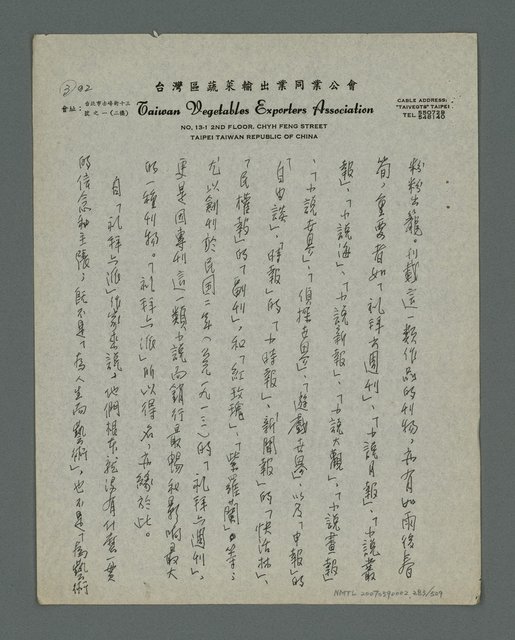 ③ 92
台灣區蔬菜輸出業同業公會
會址：台北市赤峰街十三號之一(二樓)
Taiwan Vegetables Exporters Association
CABLE ADDRESS:
"TAIVEGTS" TAIPEI
TEL.
NO, 13-1 2ND FLOOR, CHYH FENG STREET
TAIPEI TAIWAN REPUBLIC OF CHINA
紛紛出籠。刊載這一類作品的刊物，亦有如雨後春
筍，重要者如「礼拜六週刊」、「小說月報」、「小說叢
報」、「小說海」、「小說新報」、「小說大觀」、「小說畫報」
、「小說世界」、「偵探世界」、「遊戲世界」以及「申報」的
「自由談」、「時報」的「小時報」、「新聞報」的「快活林」、
「民權報」的「副刊」，和「紅玫瑰」、「紫羅蘭」等；
尤以創刊於民國二年（公元一九一三）的「礼拜六週刊」，
更是因專刊這一類小說而銷行最暢和影响最大
的一種刊物。「礼拜六派」所以得名，亦緣於此。
自「礼拜六派」作家來說，他們根本就沒有什麼一貫
的信念和主張，既不是「為人生而藝術」，也不是「為藝術
NMTL 20070590002 285/509